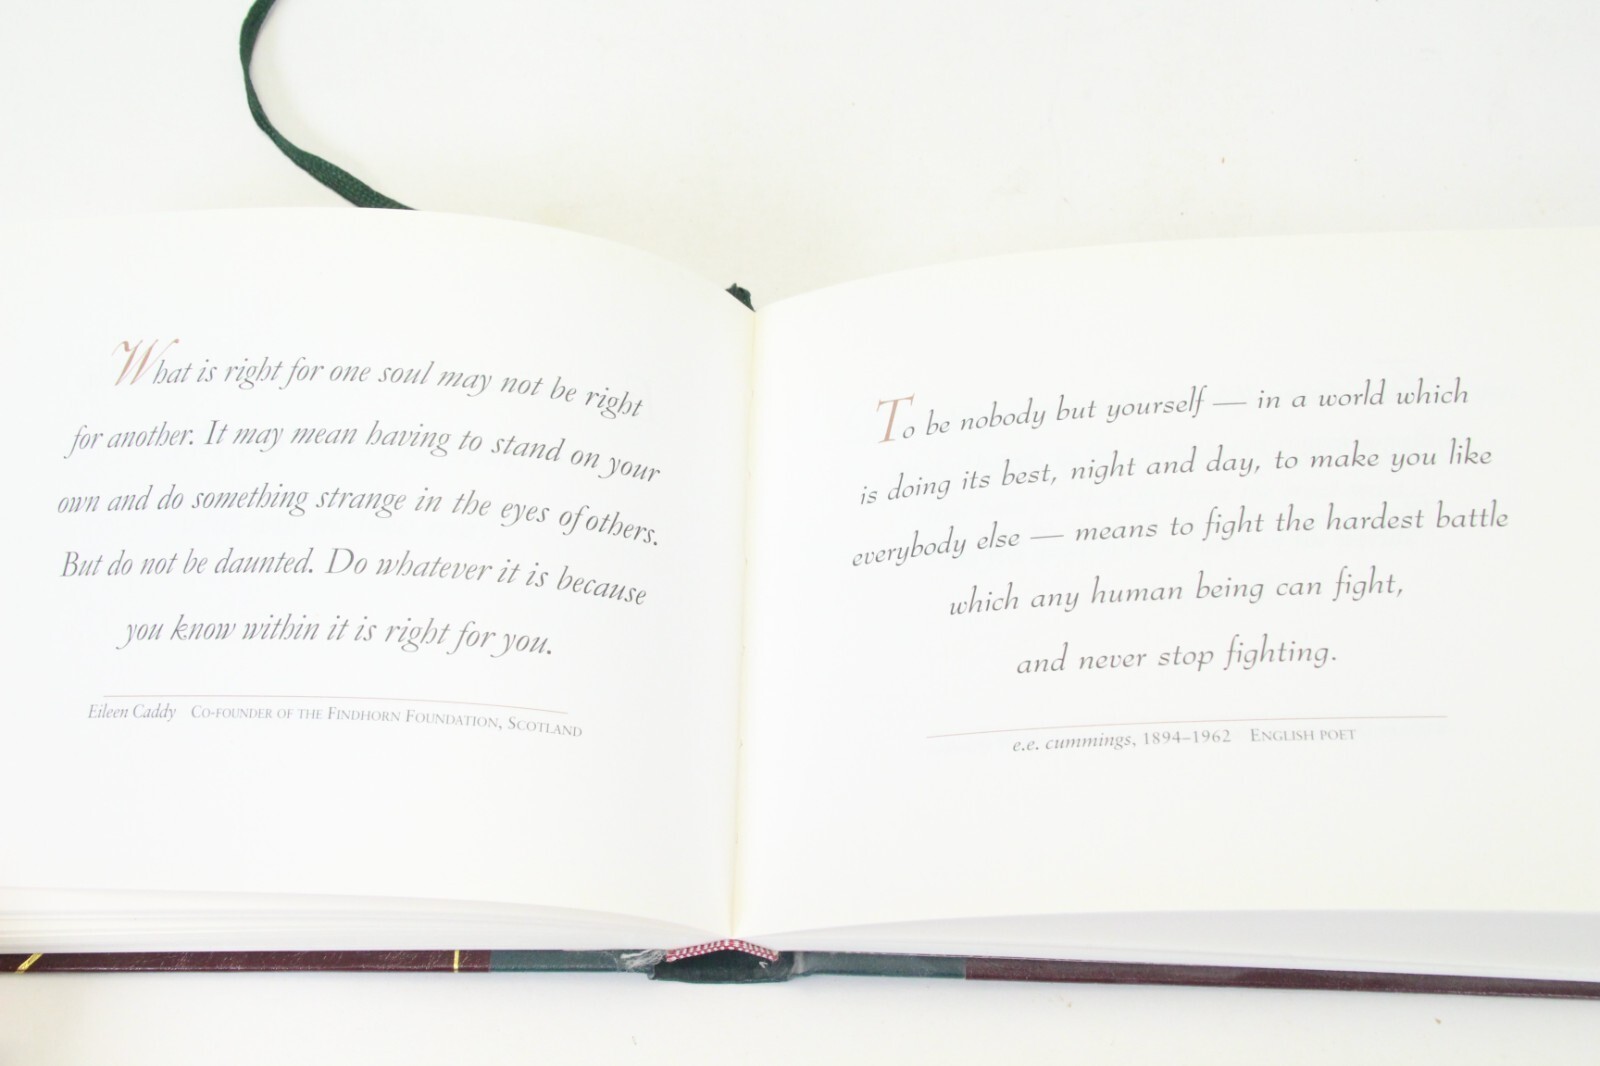 What is right for one soul may not be right
for another. It may mean having to stand on your
own and do something strange in the eyes of others.
But do not be daunted. Do whatever it is because
you know within it is right for you.
Eileen Caddy CO-FOUNDER OF THE FINDHORN FOUNDATION, SCOTLAND
To be nobody but yourself — in a world which
is doing its best, night and day, to make you like
everybody else — means to fight the hardest battle
which any human being can fight,
and never stop fighting.
e.e. cummings, 1894–1962 ENGLISH POET